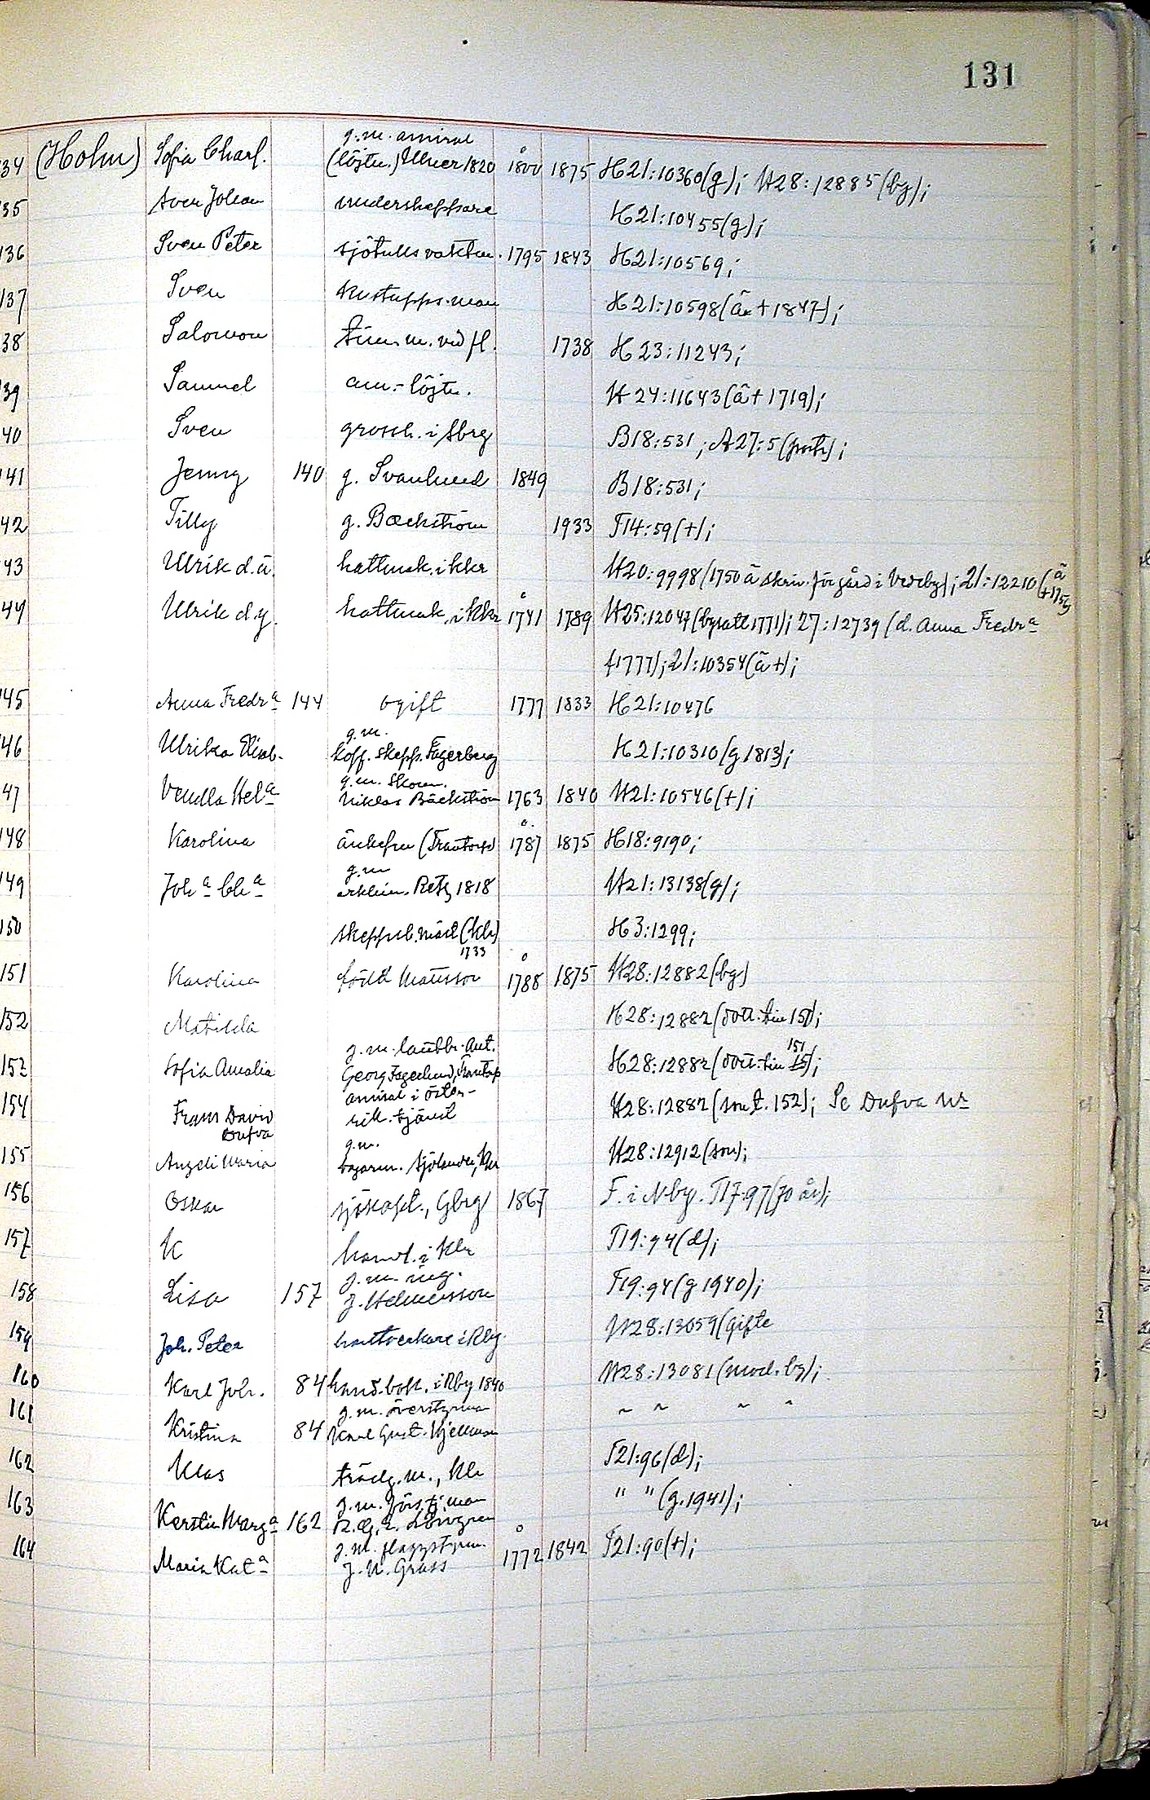 131
34 (Holm) Sofia Charl. g.m. amiral
(löjtn.) Ulner 1820 1800 1875 H21:10360(g); H28:12885(bg);
35 Sven Johan underskeppare H21:10455(g);
136 Sven Peter sjötullsvaktm. 1795 1843 H21:10569;
137 Sven H21:10598(äe +1847);
38 Salomon timm. vid fl. 1738 H23:11243;
39 Samuel am.-löjtn. H24:11643(ä+ 1719);
40 Sven grossh. i B18:531; A27:5
141 Jenny 140 g. Svanlund 1849 B18:531;
42 Tilly g. Bæckström 1933 T14:59(+);
43 Ulrik d.ä. hattmak. i kkr H20:9998(1750 ä skriv. för gård i Vedeby); 21:12210(ä
44 Ulrik d.y. hattmak. i kkr 1741 1789 H25:12047 27:12739 (d. Anna Fredrª
f1777); 21:10354(ä+);
145 Anna Fredrª 144 ogift 1777 1833 H21:10476
46 Ulrika Elisab. g.m.
koff. skepp. Fagerberg H21:10310(g 1813);
47 Vendla Helª g.m. skom.
Niklas Bäckström 1763 1840 H21:10546(+);
148 Karolina änkefru 1787 1875 H18:9190;
149 Johª Chª g.m
Retz 1818 H21:13138(g);
150 skeppsb. mäst (kkr)
1733 H3:1299;
151 Karolina född Matisson 1788 1875 H28:12882(bg)
152 Matilda H28:12882(dott. till 151);
153 Sofia Amalia g.m. lantbr. Aut.
Georg Fagerlund, H28:12882(dott. till 151);
154 Frans David
Dufva amiral i öster-
rik. tjänst H28:12882(son t. 152); Se Dufva Nr
155 Angeli Maria g.m.
bagarm. Sjölander, Kkr H28:12912(son);
156 Oskar sjökapt., Gbrg 1867 F. i Nby. T17:97(70 år);
157 K handl. i Kkr T19:94(d);
158 Lisa 157 g.m. ing.
J. Helmersson T19:94(g 1940);
159 Joh. Peter hantverkare i Rby H28:13059(gifte
160 Karl Joh. 84 hand.bokh. i Rby 1840 H28:13081(mod. bg);
161 Kristina 84 g.m. överstyrman
Karl Gust. Kjellman ~ ~ ~ "
162 Klas trädg.m., Kkr T21:96(d);
163 Kerstin Margª 162 g.m. förs.tj.man
R.G.E. Lövgren " " (g. 1941);
164 Maria Katª g.m. flaggstyrm.
J.N. Grass 1772 1842 T21:90(+);